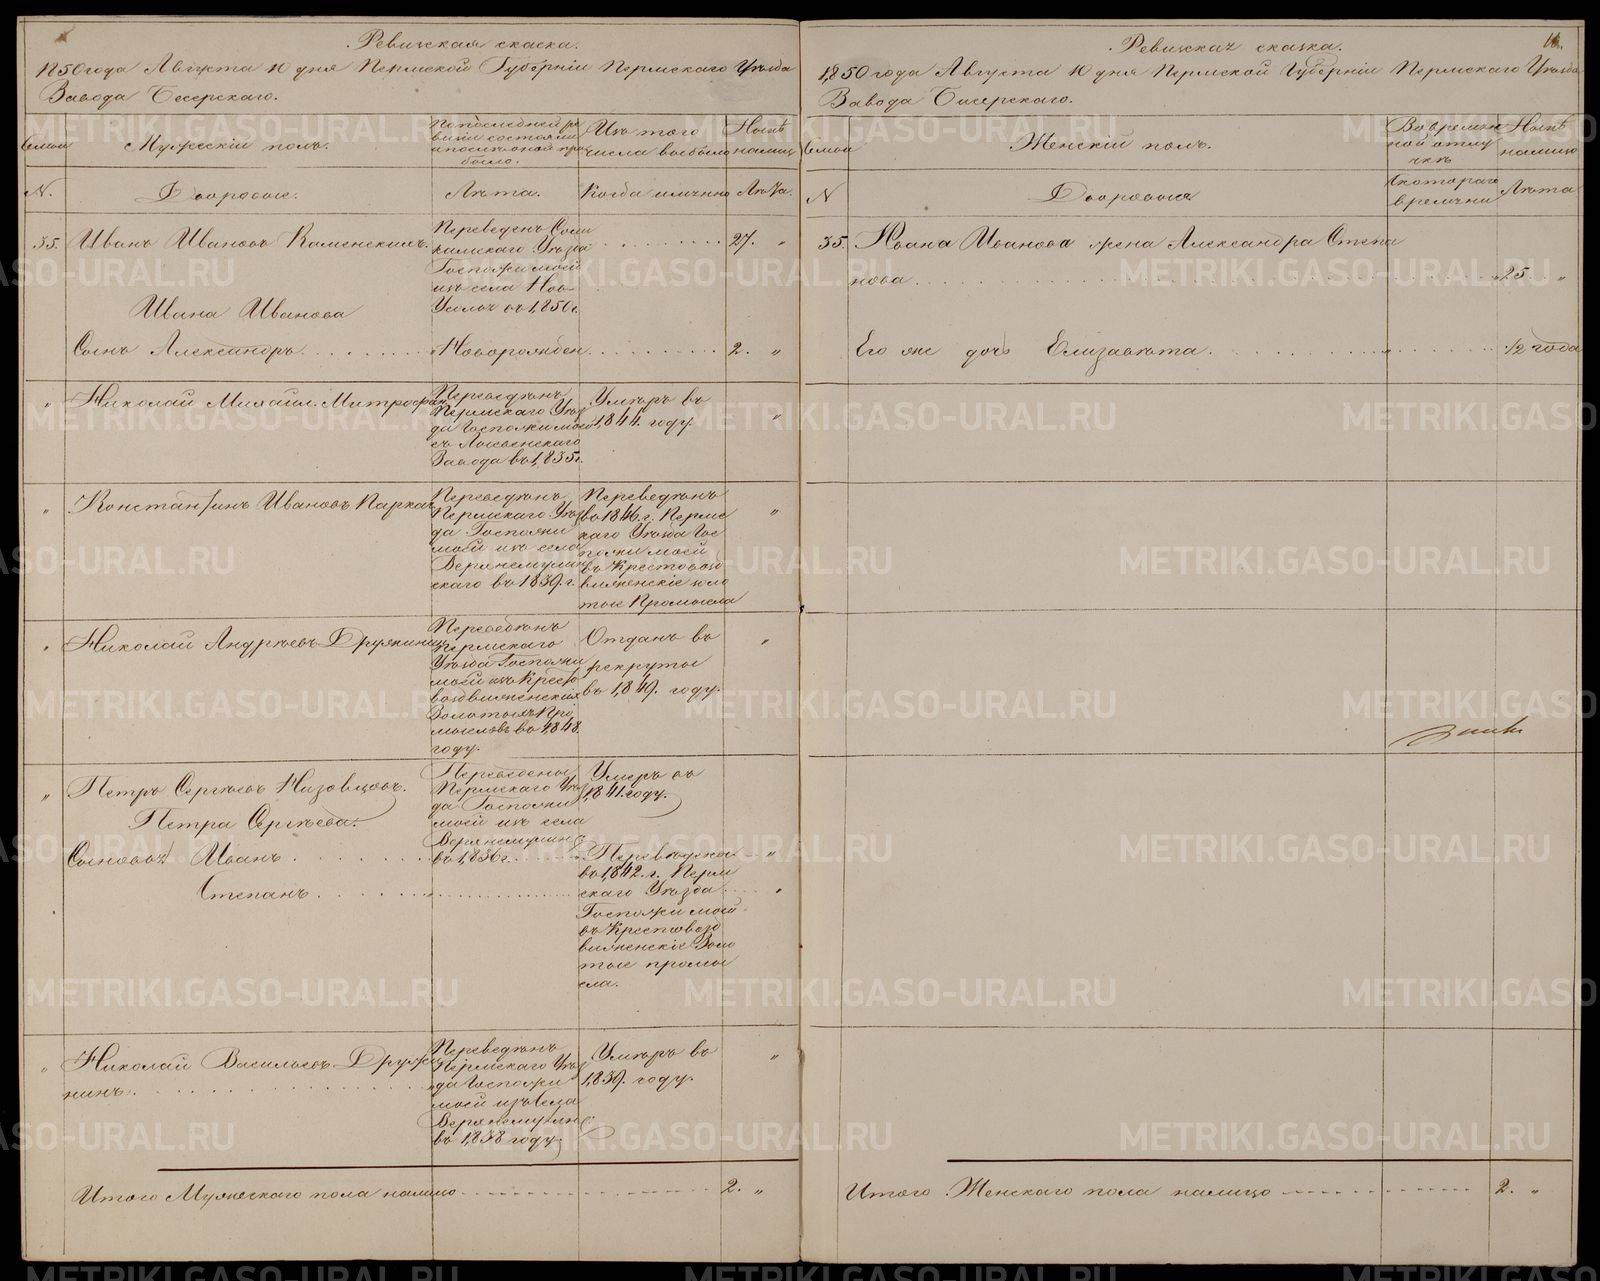 Ревизская сказка.
1850 года Августа 10 дня Пермской Губерніи Пермскаго Уѣзда
Завода Бисерскаго.
Семьи
Мужескій полъ.
По послѣдней ре
визіи состояло
и послѣ оной при
было.
Изъ того
числа выбыло
Нынѣ
налицо
N.
Дворовые.
Лѣта.
Когда имянно
Лѣта.
35.
Иванъ Ивановъ Каменскихъ.
Переведенъ Соли
камскаго Уѣзда
Госпожи моей
изъ села Нов-
Усолья въ 1850 г.
27. „
Ивана Иванова
Сынъ Александръ
Новорожден
2. „
„ Николай Михайл. Митрофан
Переведѣнъ
Пермскаго Уѣз
да Госпожи моей
съ Лысвенскаго
Завода въ 1835 г.
Умѣръ въ
1844. году.
„
„ Константинъ Ивановъ Паркач
Переведѣнъ
Пермскаго Уѣз
да Госпожи
моей изъ села
Верхнемулин
скаго въ 1839. г.
Переведѣнъ
въ 1846. г. Перм
скаго Уѣзда Гос
пожи моей
въ Крестовозд
виженскіе золо
тые Промысла
„
„ Николай Андрѣевъ Дружининъ
Переведѣнъ
Пермскаго
Уѣзда Госпожи
моей изъ Кресто
воздвиженскихъ
Золотыхъ Про
мысловъ въ 1848.
году.
Отданъ въ
рекруты
въ 1849. году.
„
„ Петръ Сергѣевъ Низовцовъ.
Петра Сергѣева.
Сыновья Иванъ
Степанъ
Переведены
Пермскаго Уѣз
да Госпожи
моей изъ села
Верхнемулин
въ 1836 г.
Умеръ въ
1841. году.
Переведены
въ 1842. г. Перм
скаго Уѣзда
Госпожи моей
въ Крестовозд
виженскіе Золо
тые промы
сла.
„
„
„ Николай Васильевъ Дружи
нинъ.
Переведѣнъ
Пермскаго Уѣз
да Госпожи
моей изъ Села
Верхнемулин
въ 1838 году.
Умѣръ въ
1839. году.
„
Итого Мужескаго пола налицо 2. „
Ревизская сказка.
1850 года Августа 10 дня Пермской Губерніи Пермскаго Уѣзда
Завода Бисерскаго.
Семьи
Женскій полъ.
Во времен
ной отлу
чкѣ
Нынѣ
налицо
N
Дворовыя
Съ котораго
времени
Лѣта
35.
Іоана Иванова жена Александра Степа
нова
25 „
Его же дочь Елизавѣта. 1/2 года
Итого Женскаго пола налицо 2. „
METRIKI.GASO-URAL.RU